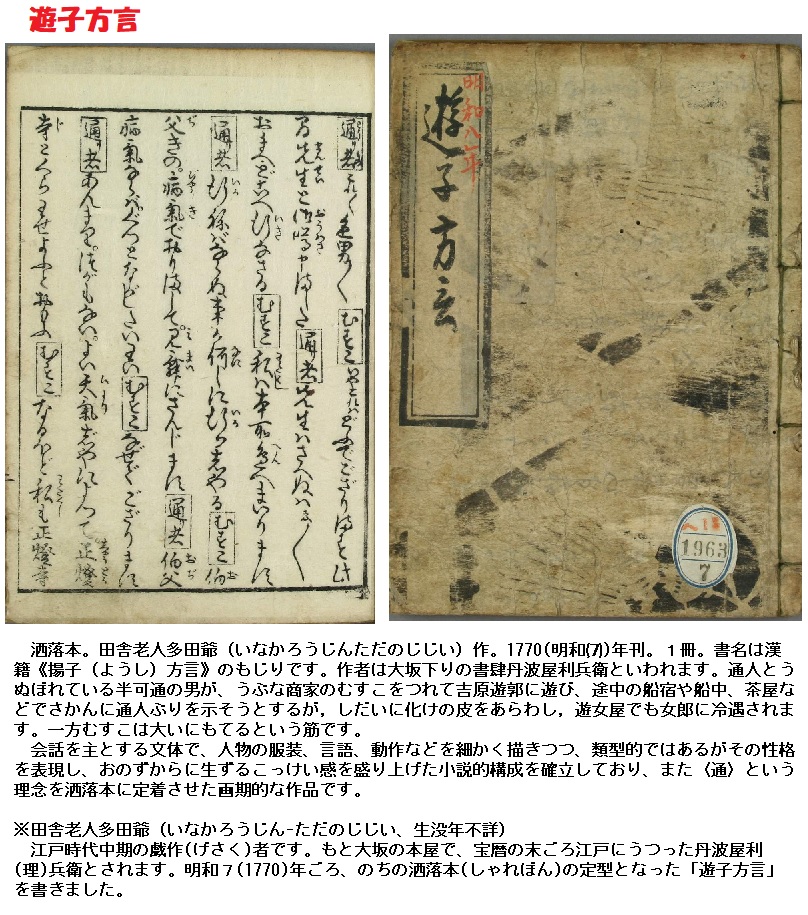 遊子方言
通り者 色男〱 むすこ でござります此
間先生と御噂申ました 通り者 先生ハさへぬハさ〱
おまへどこへ行なさる むすこ 私は本所邊へまいります
通り者 行ねばならぬ事か何しに行しやる むすこ 伯
父きの。病氣でおりまして。見舞にさんじます 通り者 伯父
病氣 むすこ なぜでござります
通り者 あんまり。よい天氣じやによつて正燈
寺 とおもふ むすこ なるほど私も正燈寺
明和八年
遊子方言
1963
7
洒落本。田舎老人多田爺（いなかろうじんただのじじい）作。1770(明和(7))年刊。１冊。書名は漢
籍《揚子（ようし）方言》のもじりです。作者は大坂下りの書肆丹波屋利兵衛といわれます。通人とう
ぬぼれている半可通の男が、うぶな商家のむすこをつれて吉原遊郭に遊び、途中の船宿や船中、茶屋な
どでさかんに通人ぶりを示そうとするが，しだいに化けの皮をあらわし，遊女屋でも女郎に冷遇されま
す。一方むすこは大いにもてるという筋です。
会話を主とする文体で、人物の服装、言語、動作などを細かく描きつつ、類型的ではあるがその性格
を表現し、おのずからに生ずるこっけい感を盛り上げた小説的構成を確立しており、また〈通〉という
理念を洒落本に定着させた画期的な作品です。
※田舎老人多田爺（いなかろうじん-ただのじじい、生没年不詳）
江戸時代中期の戯作((げさく)者です。もと大坂の本屋で、宝暦の末ごろ江戸にうつった丹波屋利
(理)兵衛とされます。明和７(1770)年ごろ、のちの洒落本(しゃれぼん)の定型となった「遊子方言」
を書きました。